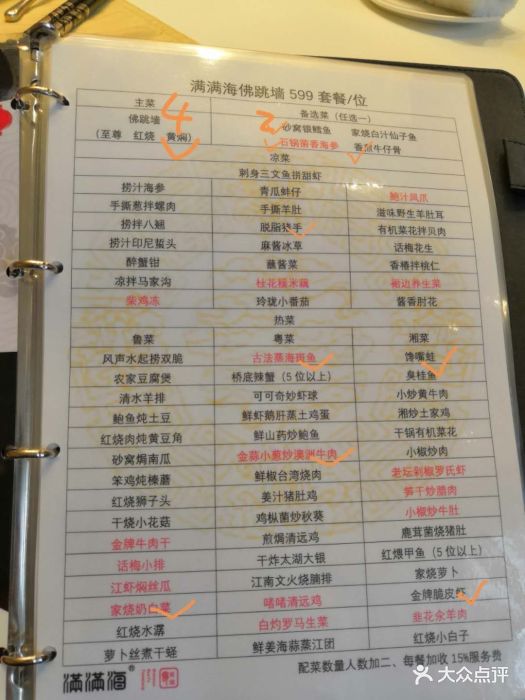 满满海佛跳墙 599 套餐/位
主菜 备选菜（任选一）
佛跳墙 砂窝银鳕鱼 家烧白汁仙子鱼
（至尊 红烧 黄焖） 石锅菌香海参 香煎牛仔骨
4 2
凉菜
刺身三文鱼捞甜虾
捞汁海参 青瓜蚌仔 鲍汁凤爪
手撕葱拌螺肉 手撕羊肚 滋味野生羊肚耳
捞拌八翅 脱脂猪手 有机菜花拌贝肉
捞汁印尼蜇头 麻酱冰草 话梅花生
醉蟹钳 蘸酱菜 香椿拌桃仁
凉拌马家沟 桂花糯米藕 裙边养生菜
柴鸡冻 玲珑小番茄 酱香肘花
热菜
鲁菜 粤菜 湘菜
风声水起捞双脆 古法蒸海斑鱼 馋嘴蛙
农家豆腐煲 桥底辣蟹（5 位以上） 臭桂鱼
清水羊排 可可奇妙虾球 小炒黄牛肉
鲍鱼炖土豆 鲜虾鹅肝蒸土鸡蛋 湘炒土家鸡
红烧肉炖黄豆角 鲜山药炒鲍鱼 干锅有机菜花
砂窝焗南瓜 金蒜小葱炒澳洲牛肉 小椒炒肉
笨鸡炖榛蘑 鲜椒台湾烧肉 老坛剁椒罗氏虾
红烧狮子头 姜汁猪肚鸡 笋干炒腊肉
干烧小花菇 鸡枞菌炒秋葵 小椒炒牛肚
金牌牛肉干 煎焗清远鸡 鹿茸菌烧猪肚
话梅小排 干炸太湖大银 红煨甲鱼（5 位以上）
江虾焖丝瓜 江南文火烧腩排 家烧萝卜
家烧奶白菜 啫啫清远鸡 金牌脆皮虾
红烧水潺 白灼罗马生菜 韭花汆羊肉
萝卜丝煮干蛏 鲜姜海蒜蒸江团 红烧小白子
满满海 配菜数量人数加二、每餐加收 15%服务费
大众点评